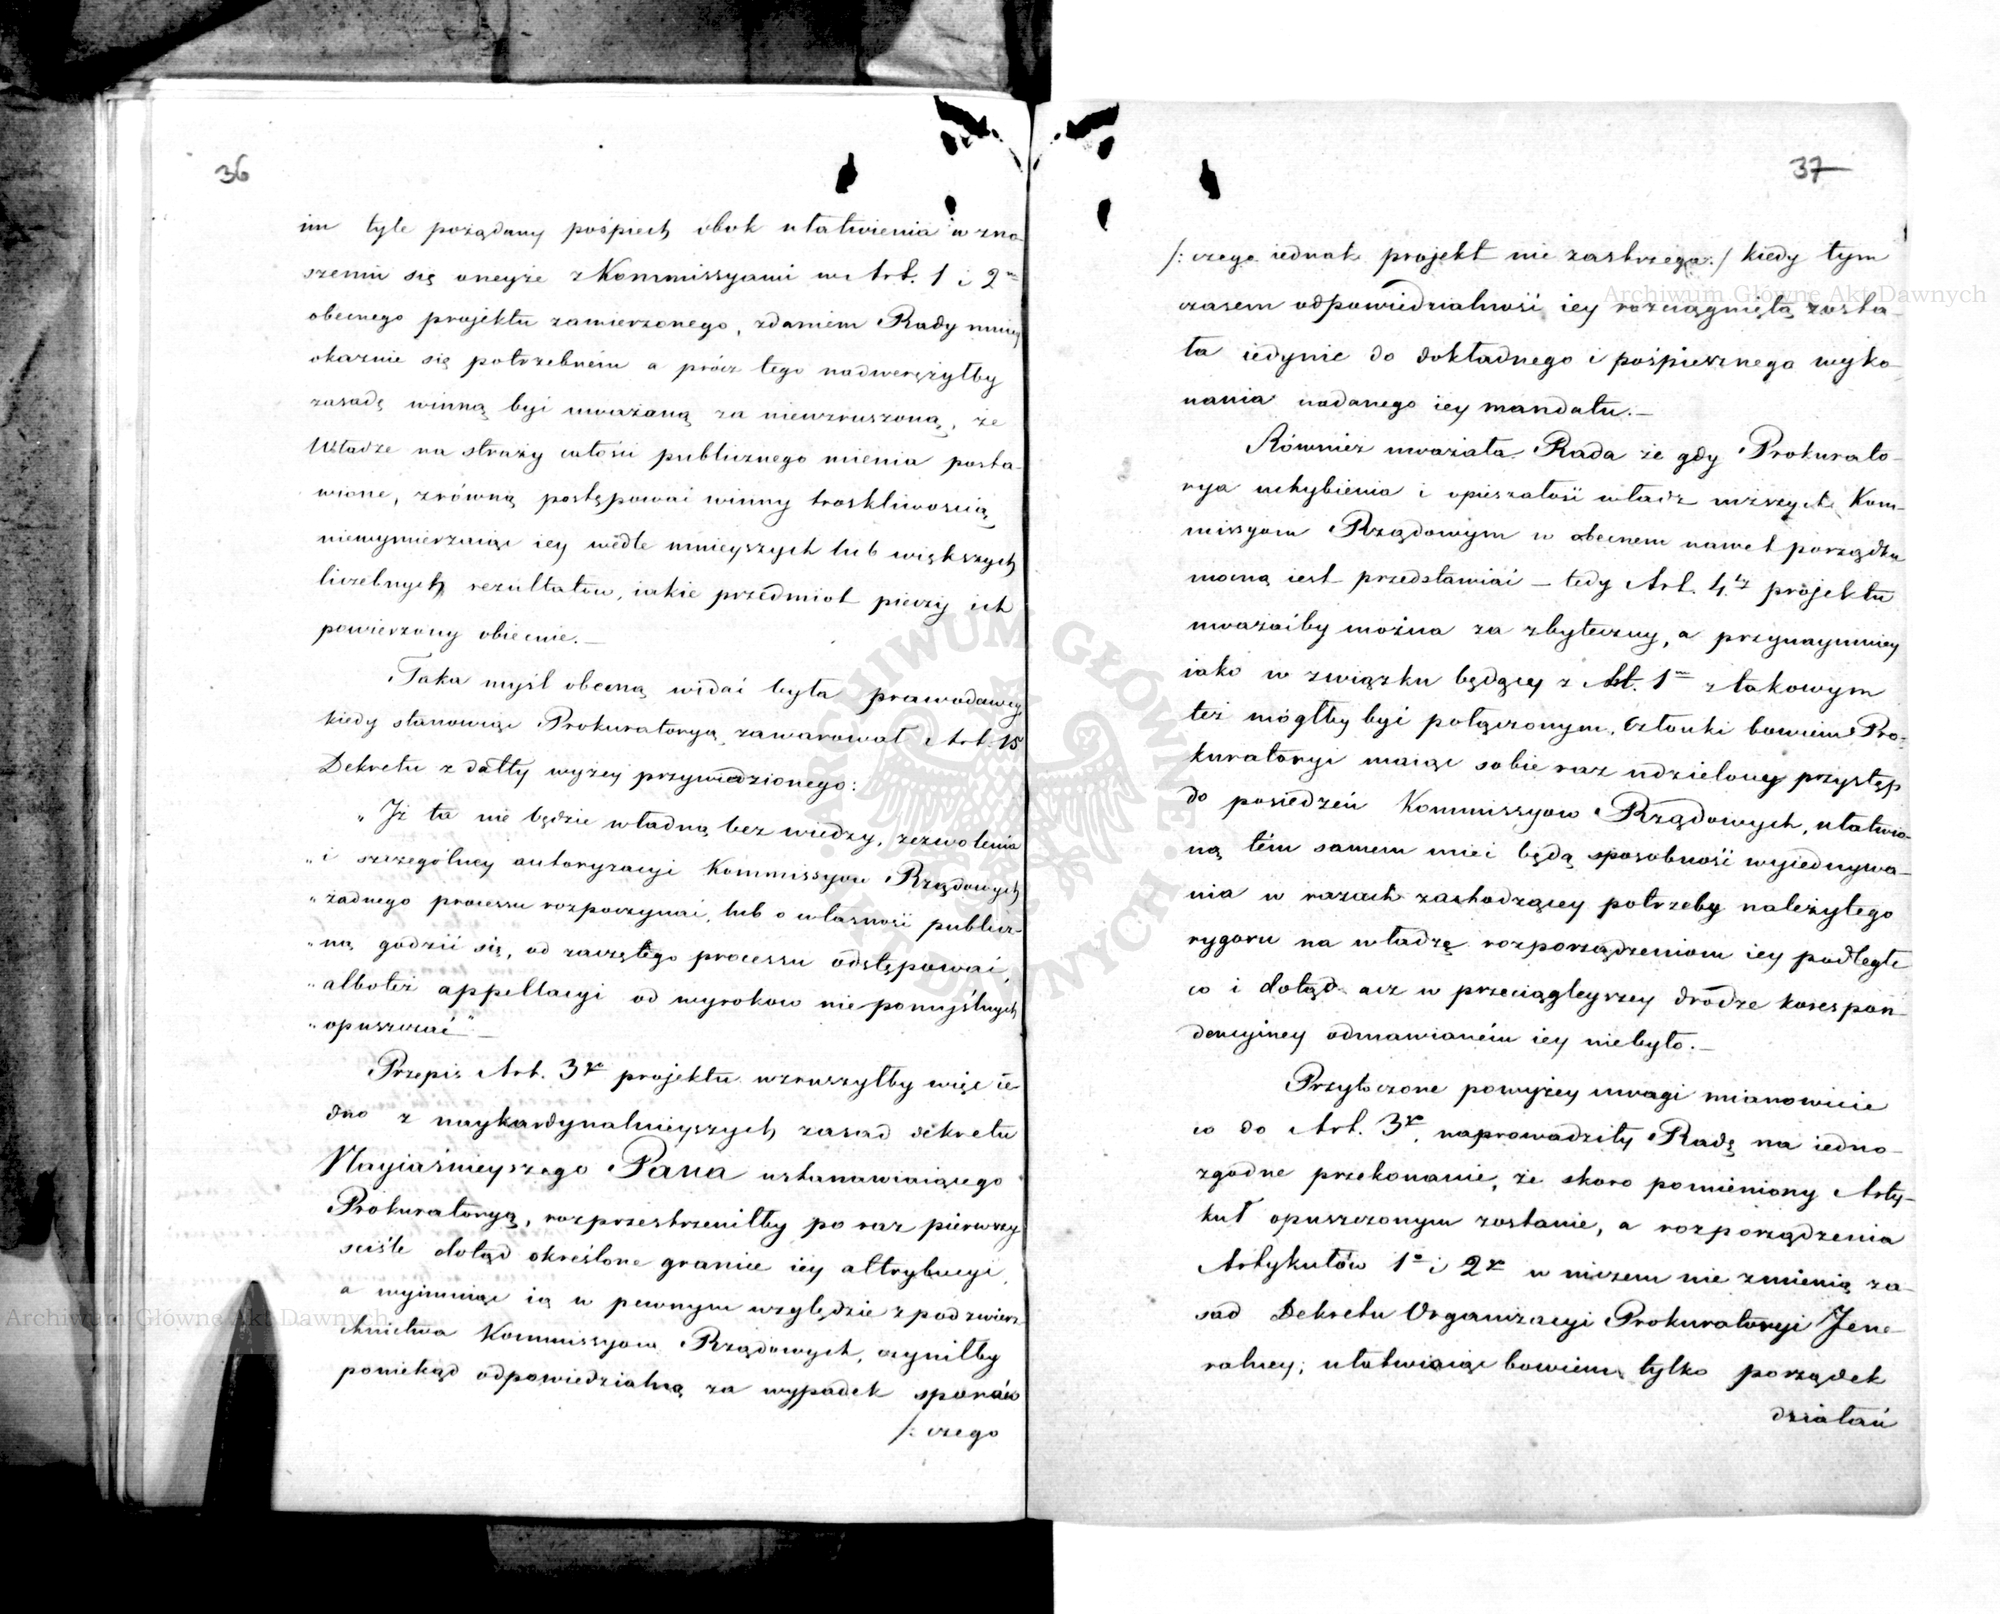 36
im tyle pożądany pośpiech obok ułatwienia w zno-
szeniu się oneyże z Kommissyami w Art. 1 i 2m
obecnego projektu zamierzonego, zdaniem Rady mniey
okaznie się potrzebném a prócz tego nadwerężyłby
zasadę winną być uważaną za niewzruszoną, że
Władze na straży całości publicznego mienia posta-
wione, zrówną postępować winny troskliwością,
niewymierzaiąc iey wedle mnieyszych lub większych
liczebnych rezultatów, iakie przedmiot pieczy ich
powierzony obiecuie.—
Taka myśl obecną widać była prawodawcy
kiedy stanowiąc Prokuratoryą zawarował Art. 15
Dekretu z datty wyżey przywiedzionego:
„Iż ta nie będzie władną bez wiedzy, zezwolenia
„i szczególney autoryzacyi Kommissyow Rządowych
„żadnego processu rozpoczynać, lub o własność publicz-
„ną godzić się, od zaczętego processu odstępować,
„alboteż appellacyi od wyrokow nie pomyślnych
„opuszczać"—
Przepis Art. 3go projektu wzruszyłby więc ie-
dno z naykardynalnieyszych zasad dekretu
Nayiaśnieyszego Pana ustanawiaiącego
Prokuratoryą, rozprzestrzeniłby po raz pierwszy
ściśle dotąd określone granice iey attrybucyi,
a wyimuiąc ią w pewnym względzie z pod zwierz-
chnictwa Kommissyow Rządowych, czyniłby
poniekąd odpowiedzialną za wypadek sporów
/: czego
37
/: czego iednak projekt nie zastrzega :/ kiedy tym
czasem odpowiedzialność iey rozciągniętą zosta-
ła iedynie do dokładnego i pośpiesznego wyko-
nania nadanego iey mandatu.—
Również uważała Rada że gdy Prokurato-
rya uchybienia i opieszałość władz niższych Kom-
missyom Rządowym w obecnem nawet porządku
mocną iest przedstawiać — tedy Art. 4ty projektu
uważaćby można za zbyteczny, a przynaymniey
iako w związku będący z Art. 1m z takowym
też mógłby być połączonym. Członki bowiem Pro-
kuratoryi maiąc sobie raz udzielony przystęp
do posiedzeń Kommissyow Rządowych, ułatwio-
ną tém samem mieć będą sposobność wyiednywa-
nia w razach zachodzącey potrzeby należytego
rygoru na władzę rozporządzeniom iey podległe
co i dotąd acz w przeciągleyszey drodze korespon-
dencyiney odmawianém iey niebyło.—
Przytoczone powyżey uwagi mianowicie
co do Art. 3go, naprowadziły Radę na iedno-
zgodne przekonanie, że skoro pomieniony Arty-
kuł opuszczonym zostanie, a rozporządzenia
Artykułów 1o i 2go w niczem nie zmienią za-
sad Dekretu Organizacyi Prokuratoryi Jene-
ralney; ułatwiaiąc bowiem tylko porządek
działań
Archiwum Główne Akt Dawnych
Archiwum Główne Akt Dawnych